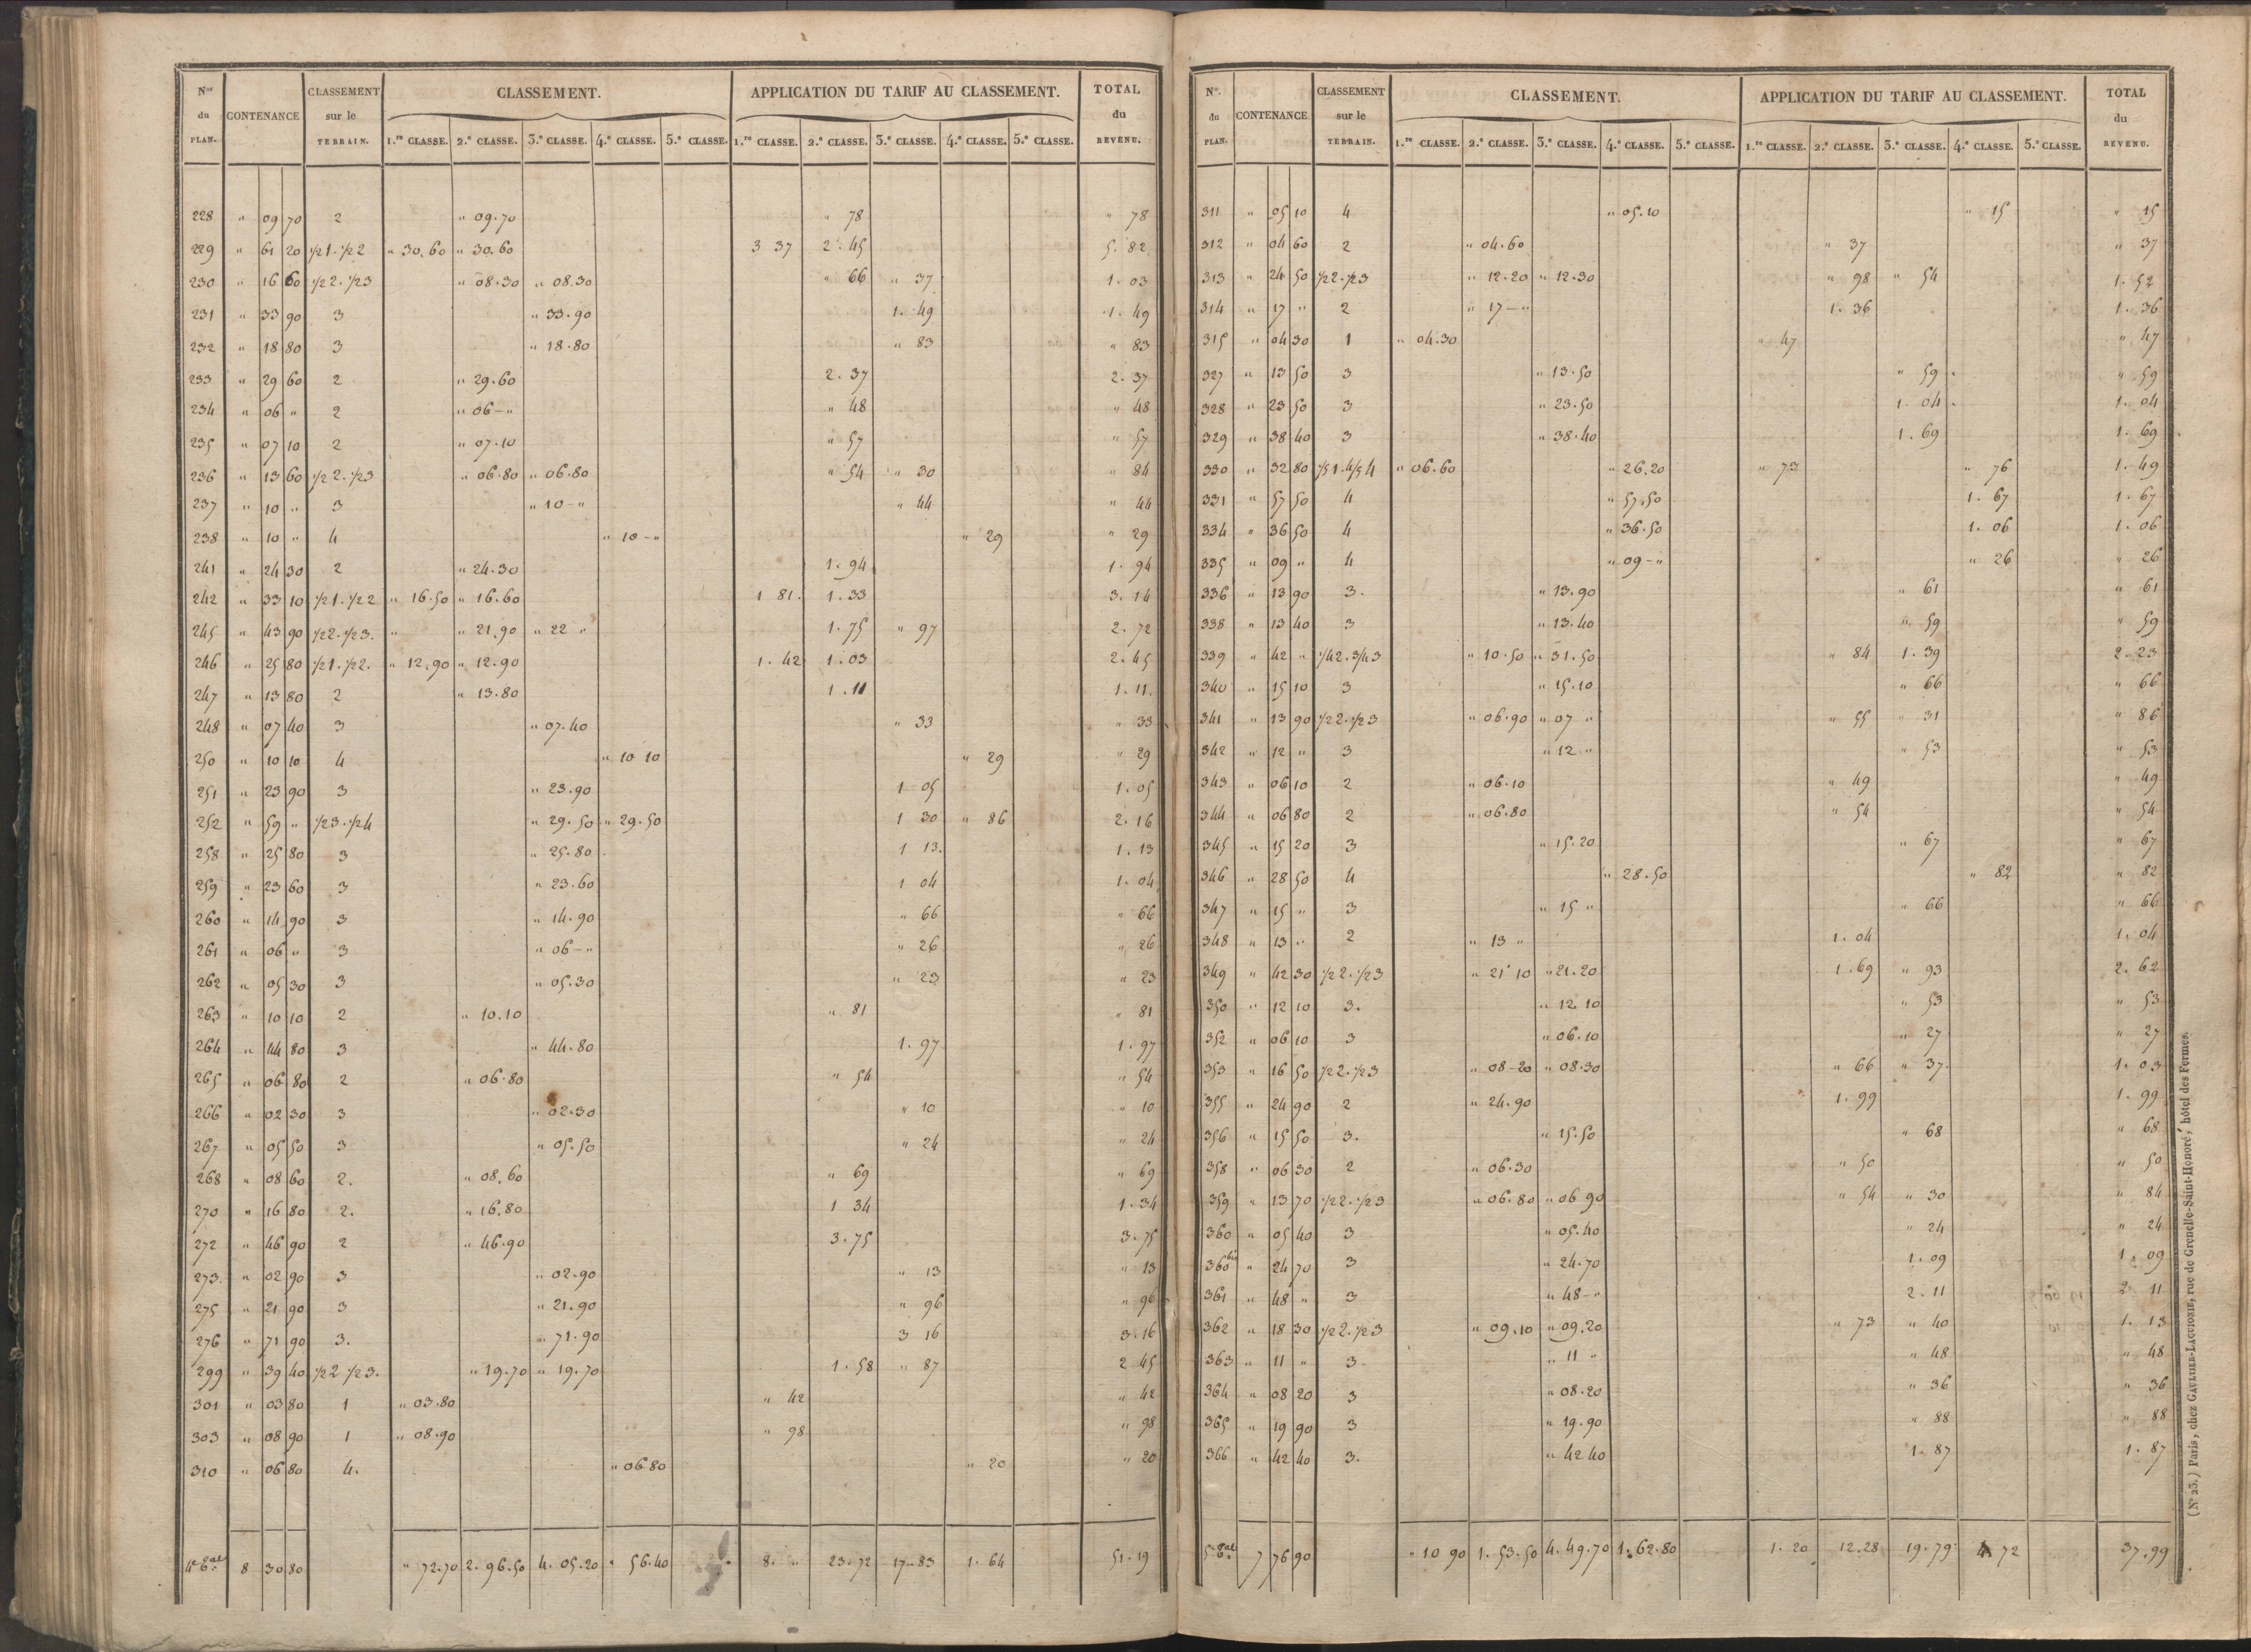 Nos du PLAN. CONTENANCE CLASSEMENT sur le TERRAIN. CLASSEMENT. APPLICATION DU TARIF AU CLASSEMENT. TOTAL du REVENU.
1.re CLASSE. 2.e CLASSE. 3.e CLASSE. 4.e CLASSE. 5.e CLASSE. 1.re CLASSE. 2.e CLASSE. 3.e CLASSE. 4.e CLASSE. 5.e CLASSE.
228 " 09 70 2 " 09.70 " 78 " 78
229 " 61 20 1/2 1. 1/2 2 " 30.60 " 30.60 3 37 2.45 5.82
230 " 16 60 1/2 2. 1/2 3 " 08.30 " 08.30 " 66 " 37 1.03
231 " 33 90 3 " 33.90 1.49 1.49
232 " 18 80 3 " 18.80 " 83 " 83
233 " 29 60 2 " 29.60 2.37 2.37
234 " 06 " 2 " 06-" " 48 " 48
235 " 07 10 2 " 07.10 " 57 " 57
236 " 13 60 1/2 2. 1/2 3 " 06.80 " 06.80 " 54 " 30 " 84
237 " 10 " 3 " 10-" " 44 " 44
238 " 10 " 4 " 10-" " 29 " 29
241 " 24 30 2 " 24.30 1.94 1.94
242 " 33 10 1/2 1. 1/2 2 " 16.50 " 16.60 1 81. 1.33 3.14
245 " 43 90 1/2 2. 1/2 3. " " 21.90 " 22 " 1.75 " 97 2.72
246 " 25 80 1/2 1. 1/2 2. " 12.90 " 12.90 1.42 1.03 2.45
247 " 13 80 2 " 13.80 1.11 1.11.
248 " 07 40 3 " 07.40 " 33 " 33
250 " 10 10 4 " 10 10 " 29 " 29
251 " 23 90 3 " 23.90 1 05 1.05
252 " 59 " 1/2 3. 1/2 4 " 29.50 " 29.50 1 30 " 86 2.16
258 " 25 80 3 " 25.80 1 13. 1.13
259 " 23 60 3 " 23.60 1 04 1.04
260 " 14 90 3 " 14.90 " 66 " 66
261 " 06 " 3 " 06-" " 26 " 26
262 " 05 30 3 " 05.30 " 23 " 23
263 " 10 10 2 " 10.10 " 81 " 81
264 " 44 80 3 " 44.80 1.97 1.97
265 " 06 80 2 " 06.80 " 54 " 54
266 " 02 30 3 " 02.30 " 10 " 10
267 " 05 50 3 " 05.50 " 24 " 24
268 " 08 60 2. " 08.60 " 69 " 69
270 " 16 80 2. " 16.80 1 34 1.34
272 " 46 90 2 " 46.90 3.75 3.75
273. " 02 90 3 " 02.90 " 13 " 13
275 " 21 90 3 " 21.90 " 96 " 96
276 " 71 90 3. " 71.90 3 16 3.16
299 " 39 40 1/2 2 1/2 3. " 19.70 " 19.70 1.58 " 87 2 45
301 " 03 80 1 " 03.80 " 42 " 42
303 " 08 90 1 " 08.90 " 98 " 98
310 " 06 80 4. " 06 80 " 20 " 20
8 30 80 " 72.70 2.96.50 4.05.20 " 56.40 8. " 23.72 17.83 1.64 51.19
Nos du PLAN. CONTENANCE. CLASSEMENT sur le TERRAIN. CLASSEMENT. APPLICATION DU TARIF AU CLASSEMENT. TOTAL du REVENU.
1.re CLASSE. 2.e CLASSE. 3.e CLASSE. 4.e CLASSE. 5.e CLASSE. 1.re CLASSE. 2.e CLASSE. 3.e CLASSE. 4.e CLASSE. 5.e CLASSE.
311 " 05 10 4 " 05.10 " 15 " 15
312 " 04 60 2 " 04.60 " 37 " 37
313 " 24 50 1/2 2. 1/2 3 " 12.20 " 12.30 " 98 " 54 1.52
314 " 17 " 2 " 17-" 1.36 1.36
315 " 04 30 1 " 04.30 " 47 " 47
327 " 13 50 3 " 13.50 " 59 " 59
328 " 23 50 3 " 23.50 1.04 1.04
329 " 38 40 3 " 38.40 1.69 1.69
330 " 32 80 1/5 1. 4/5 4 " 06.60 " 26.20 " 73 " 76 1.49
331 " 57 50 4 " 57.50 1.67 1.67
334 " 36 50 4 " 36.50 1.06 1.06
335 " 09 " 4 " 09-" " 26 " 26
336 " 13 90 3. " 13.90 " 61 " 61
338 " 13 40 3 " 13.40 " 59 " 59
339 " 42 " 1/4 2. 3/4 3 " 10.50 " 31.50 " 84 1.39 2.23
340 " 15 10 3 " 15.10 " 66 " 66
341 " 13 90 1/2 2. 1/2 3 " 06.90 " 07 " " 55 " 31 " 86
342 " 12 " 3 " 12 " " 53 " 53
343 " 06 10 2 " 06.10 " 49 " 49
344 " 06 80 2 " 06.80 " 54 " 54
345 " 15 20 3 " 15.20 " 67 " 67
346 " 28 50 4 " 28.50 " 82 " 82
347 " 15 " 3 " 15 " " 66 " 66
348 " 13 " 2 " 13 " 1.04 1.04
349 " 42 30 1/2 2. 1/2 3 " 21 10 " 21.20 1.69 " 93 2.62
350 " 12 10 3. " 12 10 " 53 " 53
352 " 06 10 3 " 06.10 " 27 " 27
353 " 16 50 1/2 2. 1/2 3 " 08-20 " 08.30 " 66 " 37. 1.03
355 " 24 90 2 " 24.90 1.99 1.99
356 " 15 50 3. " 15.50 " 68 " 68
358 " 06 30 2 " 06.30 " 50 " 50
359 " 13 70 1/2 2. 1/2 3 " 06.80 " 06 90 " 54 " 30 " 84
360 " 05 40 3 " 05.40 " 24 " 24
360 bis " 24 70 3 " 24.70 1.09 1.09
361 " 48 " 3 " 48-" 2.11 2 11
362 " 18 30 1/2 2. 1/2 3 " 09.10 " 09.20 " 73 " 40 1.13
363 " 11 " 3 " 11 " " 48 " 48
364 " 08 20 3 " 08.20 " 36 " 36
365 " 19 90 3 " 19.90 " 88 " 88
366 " 42 40 3. " 42 40 1.87 1.87
7 76 90 " 10 90 1.53.50 4.49.70 1.62.80 1.20 12.28 19.79 4 72 37.99
(No 23.) Paris, chez GAULTIER-LAGUIONIE, rue de Grenelle-Saint-Honoré, hôtel des Fermes.